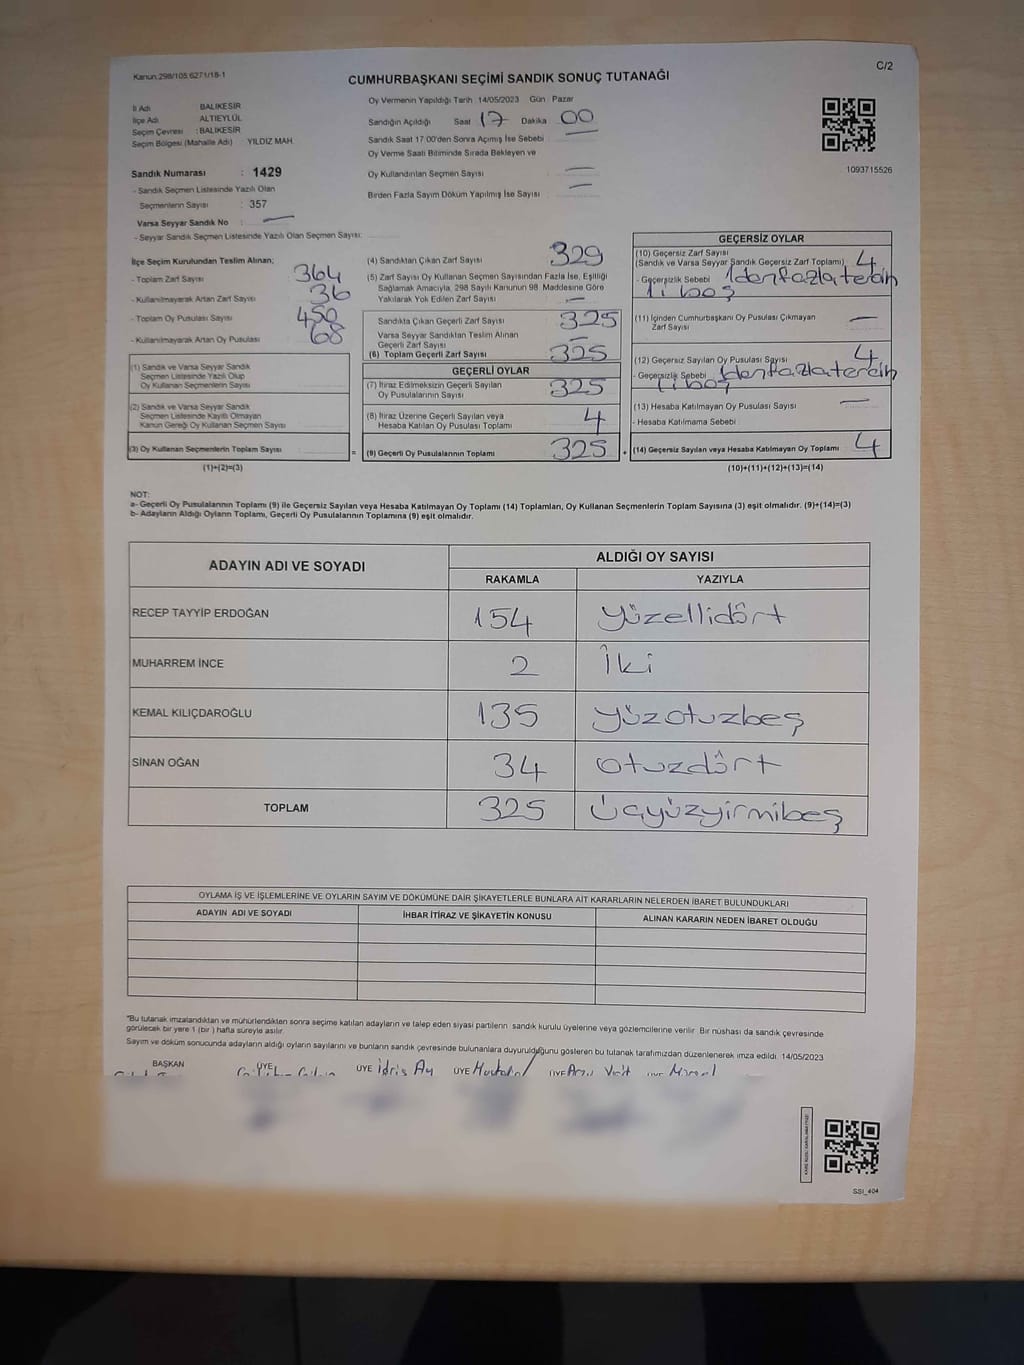 Kanun.298/105,6271/18-1
C/2
CUMHURBAŞKANI SEÇİMİ SANDIK SONUÇ TUTANAĞI
İl Adı BALIKESİR
İlçe Adı ALTIEYLÜL
Seçim Çevresi : BALIKESİR
Seçim Bölgesi (Mahalle Adı) YILDIZ MAH.
Sandık Numarası : 1429
- Sandık Seçmen Listesinde Yazılı Olan
Seçmenlerin Sayısı : 357
Varsa Seyyar Sandık No :
- Seyyar Sandık Seçmen Listesinde Yazılı Olan Seçmen Sayısı:
Oy Vermenin Yapıldığı Tarih 14/05/2023 Gün : Pazar
Sandığın Açıldığı Saat 17 Dakika 00
Sandık Saat 17:00'den Sonra Açımış İse Sebebi
Oy Verme Saati Bitiminde Sırada Bekleyen ve
Oy Kullandırılan Seçmen Sayısı :
Birden Fazla Sayım Döküm Yapılmış İse Sayısı
1093715526
İlçe Seçim Kurulundan Teslim Alınan;
- Toplam Zarf Sayısı 364
- Kullanılmayarak Artan Zarf Sayısı 36
- Toplam Oy Pusulası Sayısı 450
- Kullanılmayarak Artan Oy Pusulası 68
(1) Sandık ve Varsa Seyyar Sandık
Seçmen Listesinde Yazılı Olup
Oy Kullanan Seçmenlerin Sayısı
(2) Sandık ve Varsa Seyyar Sandık
Seçmen Listesinde Kayıtlı Olmayan
Kanun Gereği Oy Kullanan Seçmen Sayısı
(3) Oy Kullanan Seçmenlerin Toplam Sayısı =
(1)+(2)=(3)
(4) Sandıktan Çıkan Zarf Sayısı 329
(5) Zarf Sayısı Oy Kullanan Seçmen Sayısından Fazla İse, Eşitliği
Sağlamak Amacıyla, 298 Sayılı Kanunun 98. Maddesine Göre
Yakılarak Yok Edilen Zarf Sayısı
Sandıkta Çıkan Geçerli Zarf Sayısı 325
Varsa Seyyar Sandıktan Teslim Alınan
Geçerli Zarf Sayısı
(6) Toplam Geçerli Zarf Sayısı 325
GEÇERLİ OYLAR
(7) İtiraz Edilmeksizin Geçerli Sayılan
Oy Pusulalarının Sayısı 325
(8) İtiraz Üzerine Geçerli Sayılan veya
Hesaba Katılan Oy Pusulası Toplamı 4
(9) Geçerli Oy Pusulalarının Toplamı 325 +
GEÇERSİZ OYLAR
(10) Geçersiz Zarf Sayısı
(Sandık ve Varsa Seyyar Sandık Geçersiz Zarf Toplamı) 4
- Geçersizlik Sebebi 1den fazla tercih
1 i boş
(11) İçinden Cumhurbaşkanı Oy Pusulası Çıkmayan
Zarf Sayısı
(12) Geçersiz Sayılan Oy Pusulası Sayısı 4
- Geçersizlik Sebebi 1den fazla tercih
1 i boş
(13) Hesaba Katılmayan Oy Pusulası Sayısı
- Hesaba Katılmama Sebebi
(14) Geçersiz Sayılan veya Hesaba Katılmayan Oy Toplamı 4
(10)+(11)+(12)+(13)=(14)
NOT:
a- Geçerli Oy Pusulalarının Toplamı (9) ile Geçersiz Sayılan veya Hesaba Katılmayan Oy Toplamı (14) Toplamları, Oy Kullanan Seçmenlerin Toplam Sayısına (3) eşit olmalıdır. (9)+(14)=(3)
b- Adayların Aldığı Oyların Toplamı, Geçerli Oy Pusulalarının Toplamına (9) eşit olmalıdır.
ADAYIN ADI VE SOYADI ALDIĞI OY SAYISI
RAKAMLA YAZIYLA
RECEP TAYYİP ERDOĞAN 154 yüzellidört
MUHARREM İNCE 2 İki
KEMAL KILIÇDAROĞLU 135 yüzotuzbeş
SİNAN OĞAN 34 otuzdört
TOPLAM 325 üçyüzyirmibeş
OYLAMA İŞ VE İŞLEMLERİNE VE OYLARIN SAYIM VE DÖKÜMÜNE DAİR ŞİKAYETLERLE BUNLARA AİT KARARLARIN NELERDEN İBARET BULUNDUKLARI
ADAYIN ADI VE SOYADI İHBAR İTİRAZ VE ŞİKAYETİN KONUSU ALINAN KARARIN NEDEN İBARET OLDUĞU
*Bu tutanak imzalandıktan ve mühürlendikten sonra seçime katılan adayların ve talep eden siyasi partilerin sandık kurulu üyelerine veya gözlemcilerine verilir. Bir nüshası da sandık çevresinde
görülecek bir yere 1 (bir ) hafta süreyle asılır.
Sayım ve döküm sonucunda adayların aldığı oyların sayılarını ve bunların sandık çevresinde bulunanlara duyurulduğunu gösteren bu tutanak tarafımızdan düzenlenerek imza edildi. 14/05/2023
BAŞKAN ÜYE ÜYE İdris Ay ÜYE ÜYE ÜYE
SSI_404